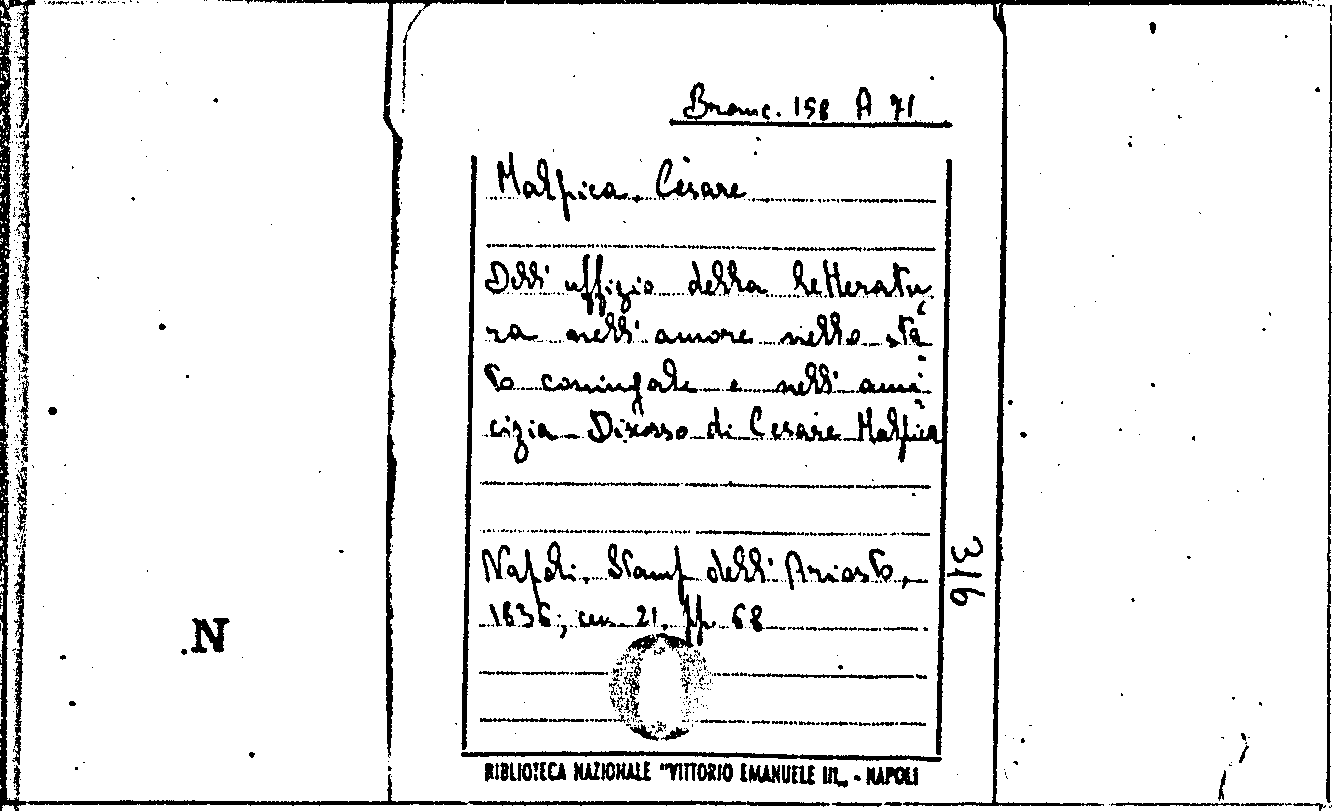 Branc. 158 A 71
Malpica, Cesare
Dell' uffizio della letteratu
ra nell' amore nello sta
to coniugale e nell' ami
cizia - Discorso di Cesare Malpica
Napoli, Stamp dell' Ariosto,
1836; cm 21, pp. 68
316
.N
BIBLIOTECA NAZIONALE "VITTORIO EMANUELE III„ - NAPOLI